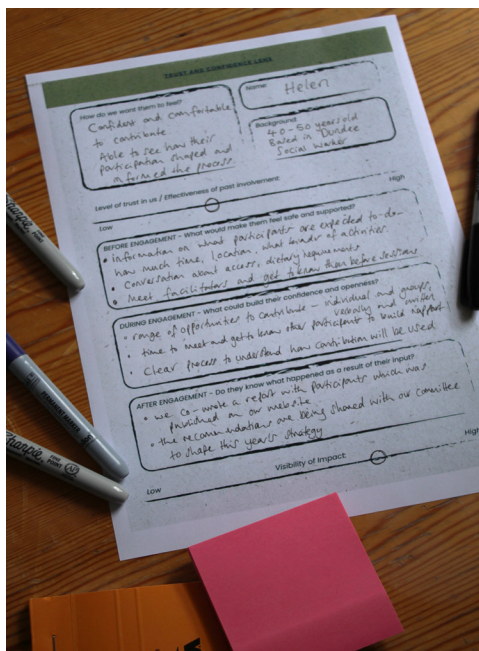 TRUST AND CONFIDENCE LENS
How do we want them to feel?
Confident and comfortable
to contribute
Able to see how their
participation shaped and
informed the process.
Name:
Helen
Background:
40-50 years old
Based in Dundee
Social worker
Level of trust in us / Effectiveness of past involvement:
Low
High
BEFORE ENGAGEMENT - What would make them feel safe and supported?
• information on what participants are expected to do -
how much time, location, what kinds of activities.
• Conversation about access, dietary requirements
• Meet facilitators and get to know them before sessions
DURING ENGAGEMENT - What could build their confidence and openness?
• range of opportunities to contribute - individual and groups,
verbally and written
• time to meet and get to know other participants to build rapport
• Clear process to understand how contribution will be used
AFTER ENGAGEMENT - Do they know what happened as a result of their input?
• we co-wrote a report with participants which was
published on our website
• the recommendations are being shared with our committee
to shape this year's strategy
Visibility of Impact:
Low
High
Sharpie
PERMANENT MARKER
Sharpie
FINE POINT